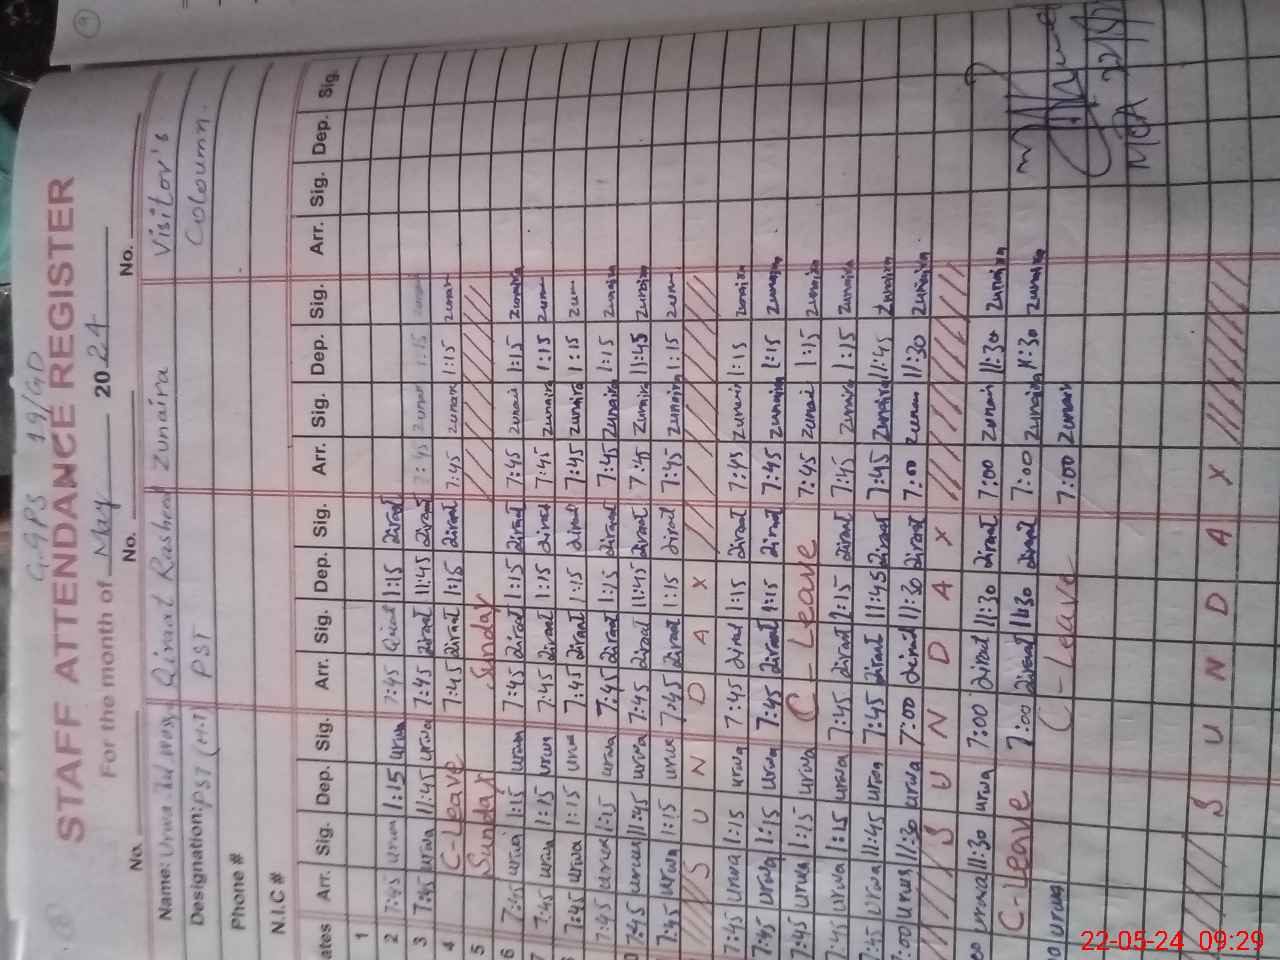 G.GPS 19/GD
STAFF ATTENDANCE REGISTER
For the month of May 2024
No. No. No.
Name: Urwa Qiraat Rasheed Zunaira Visitor's
Designation: PST (H.T) PST Coloumn.
Phone #
N.I.C #
Dates Arr. Sig. Dep. Sig. Arr. Sig. Dep. Sig. Arr. Sig. Dep. Sig. Arr. Sig. Dep. Sig.
1
2 7:45 urwa 1:15 urwa 7:45 Qiraat 1:15 Qiraat
3 7:45 urwa 11:45 urwa 7:45 Qiraat 11:45 Qiraat 7:45 zunair 1:15 zunair
4 C-Leave 7:45 Qiraat 1:15 Qiraat 7:45 zunair 1:15 zunair
5 Sunday Sunday
6 7:45 urwa 1:15 urwa 7:45 Qiraat 1:15 Qiraat 7:45 zunair 1:15 zunaira
7:45 urwa 1:15 urwa 7:45 Qiraat 1:15 Qiraat 7:45 zunaira 1:15 zunair
7:45 urwa 1:15 urwa 7:45 Qiraat 1:15 Qiraat 7:45 zunaira 1:15 zunair
7:45 urwa 1:15 urwa 7:45 Qiraat 1:15 Qiraat 7:45 zunaira 1:15 zunaira
7:45 urwa 11:45 urwa 7:45 Qiraat 11:45 Qiraat 7:45 zunaira 11:45 zunaira
7:45 urwa 1:15 urwa 7:45 Qiraat 1:15 Qiraat 7:45 zunaira 1:15 zunair
S U N D A X
7:45 urwa 1:15 urwa 7:45 Qiraat 1:15 Qiraat 7:45 zunair 1:15 zunaira
7:45 urwa 1:15 urwa 7:45 Qiraat 1:15 Qiraat 7:45 zunaira 1:15 zunaira
7:45 urwa 1:15 urwa C-Leave 7:45 zunair 1:15 zunaira
7:45 urwa 1:15 urwa 7:45 Qiraat 1:15 Qiraat 7:45 zunaira 1:15 zunaira
7:45 urwa 11:45 urwa 7:45 Qiraat 11:45 Qiraat 7:45 zunaira 11:45 zunaira
7:00 urwa 11:30 urwa 7:00 Qiraat 11:30 Qiraat 7:00 zunair 11:30 zunaira
S U N D A X
urwa 11:30 urwa 7:00 Qiraat 11:30 Qiraat 7:00 zunair 11:30 zunaira
C-Leave 7:00 Qiraat 11:30 Qiraat 7:00 zunaira 11:30 zunaira
urwa C-Leave 7:00 zunair
MEA 22/5/
S U N D A X
22-05-24 09:29